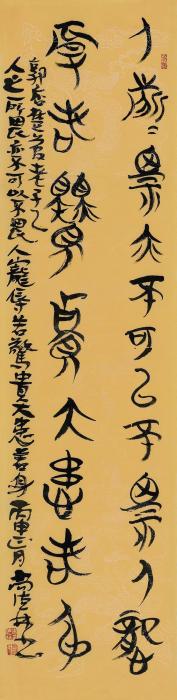 人之所畏亦不可以不畏人寵
辱若驚貴大患若身
郭店楚簡老子乙
人之所畏亦不可以不畏人寵辱若驚貴大患若身丙申月尚林